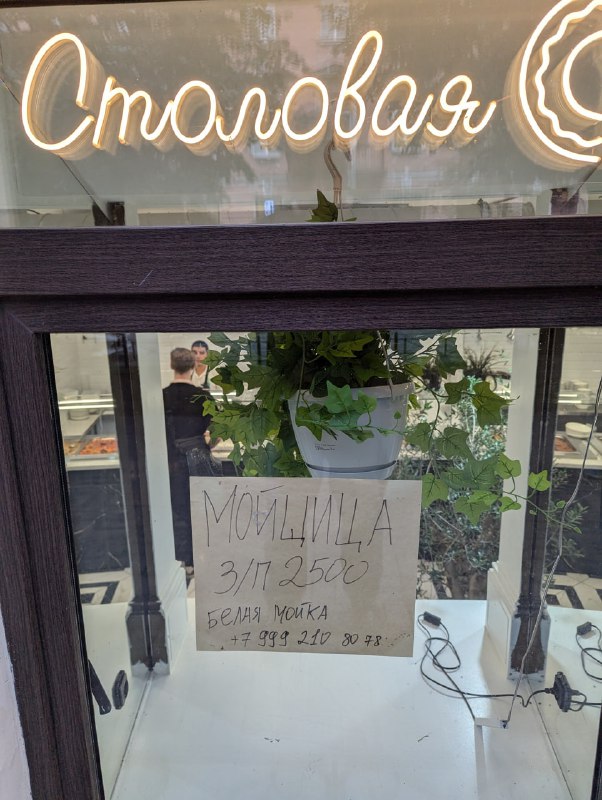 Столовая
МОЙЩИЦА
З/П 2500
БЕЛАЯ МОЙКА
+7 999 210 80 78